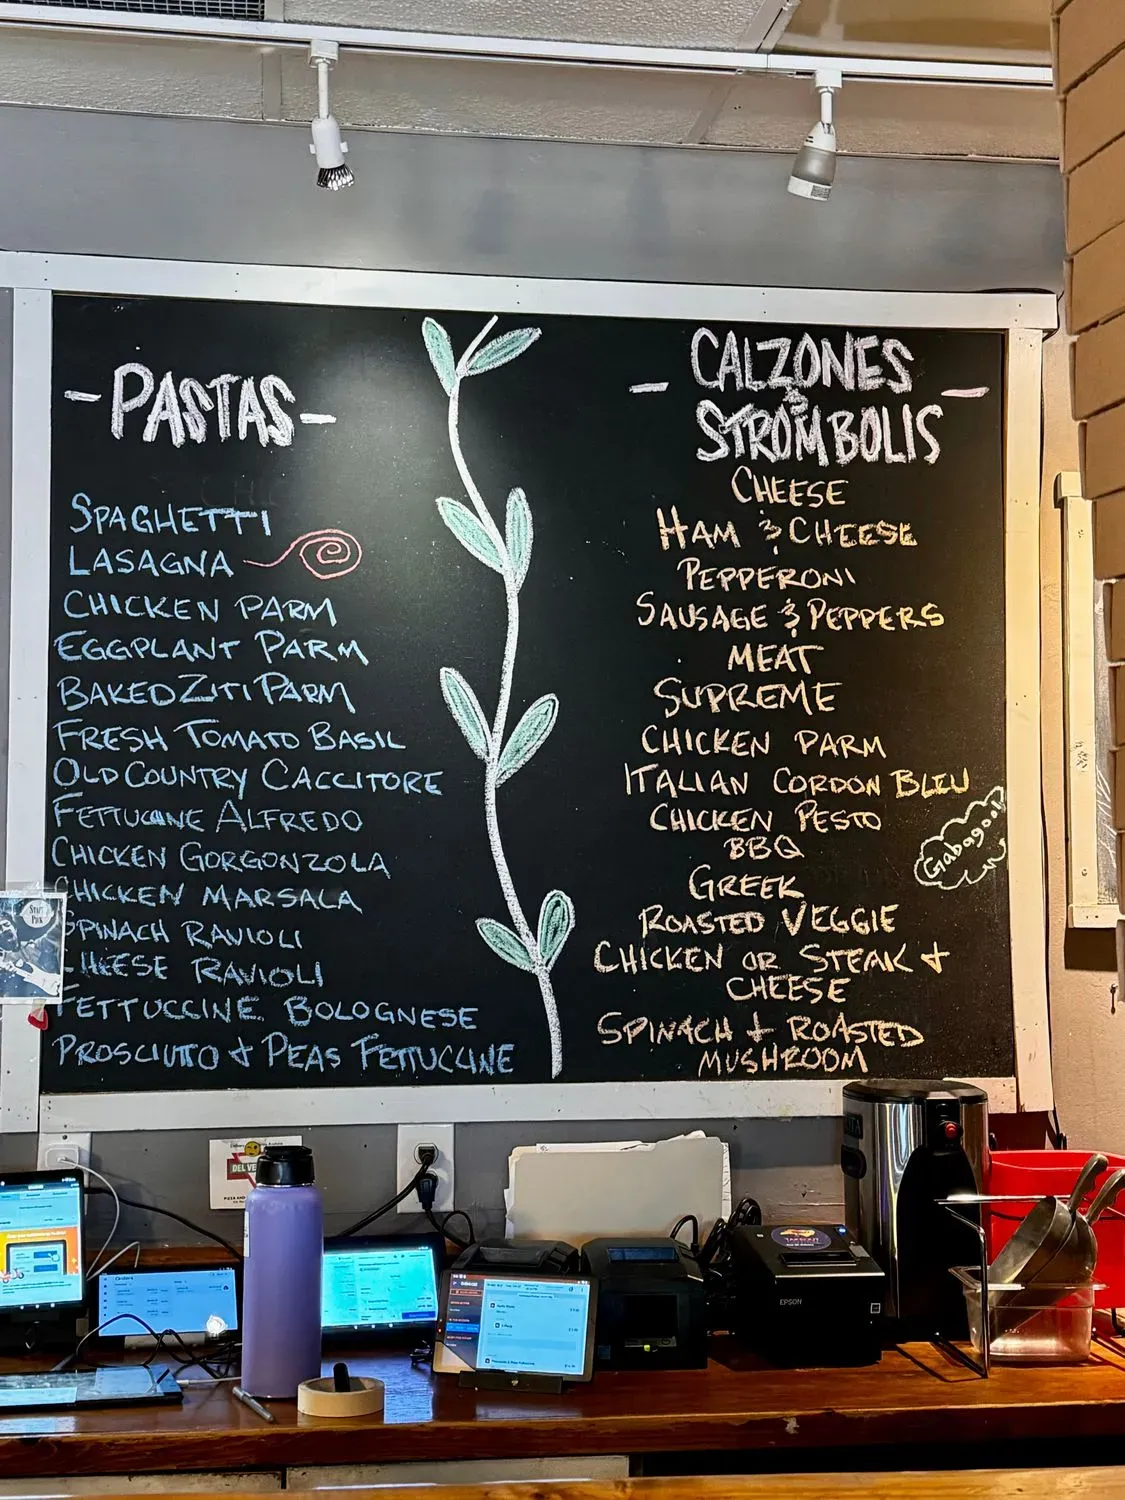 - PASTAS -
SPAGHETTI
LASAGNA
CHICKEN PARM
EGGPLANT PARM
BAKED ZITI PARM
FRESH TOMATO BASIL
OLD COUNTRY CACCITORE
FETTUCINE ALFREDO
CHICKEN GORGONZOLA
CHICKEN MARSALA
SPINACH RAVIOLI
CHEESE RAVIOLI
FETTUCCINE BOLOGNESE
PROSCIUTTO + PEAS FETTUCCINE
- CALZONES -
&
STROMBOLIS
CHEESE
HAM & CHEESE
PEPPERONI
SAUSAGE & PEPPERS
MEAT
SUPREME
CHICKEN PARM
ITALIAN CORDON BLEU
CHICKEN PESTO
BBQ
GREEK
ROASTED VEGGIE
CHICKEN OR STEAK +
CHEESE
SPINACH + ROASTED
MUSHROOM
Gabagool
Orders
EPSON